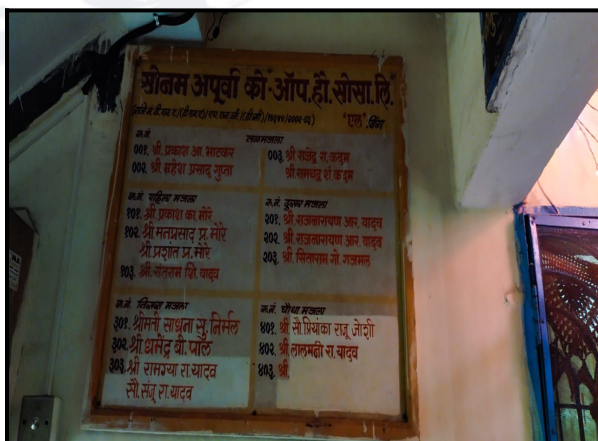 सोनम अपूर्वा को ऑप. हौ. सोसा. लि.
"एल" विंग
क.नं. तळमजला
००१. श्री. प्रकाश आ. भाटकर
००२. श्री. महेश प्रसाद गुप्ता
००३. श्री. राजेंद्र रा. कदम
श्री रामचंद्र शं. कदम
क.नं. पहिला मजला
१०१. श्री. प्रकाश का. मोरे
१०२. श्री मनप्रसाद प्र. मोरे
श्री प्रशांत प्र. मोरे
१०३. श्री. संतराम शि. यादव
क.नं. दुसरा मजला
२०१. श्री. राजनारायण आर. यादव
२०२. श्री. राजनारायण आर. यादव
२०३. श्री. सिताराम गो. गजमल
क.नं. तिसरा मजला
३०१. श्रीमती साधना सु. निर्मल
३०२ श्री धर्मेंद्र बी. पाल
३०३ श्री रामग्या रा. यादव
सौ. संजू रा. यादव
क.नं. चौथा मजला
४०१. श्री सौ प्रियंका राजू जोशी
४०२. श्री लालमनी रा. यादव
४०३. श्री